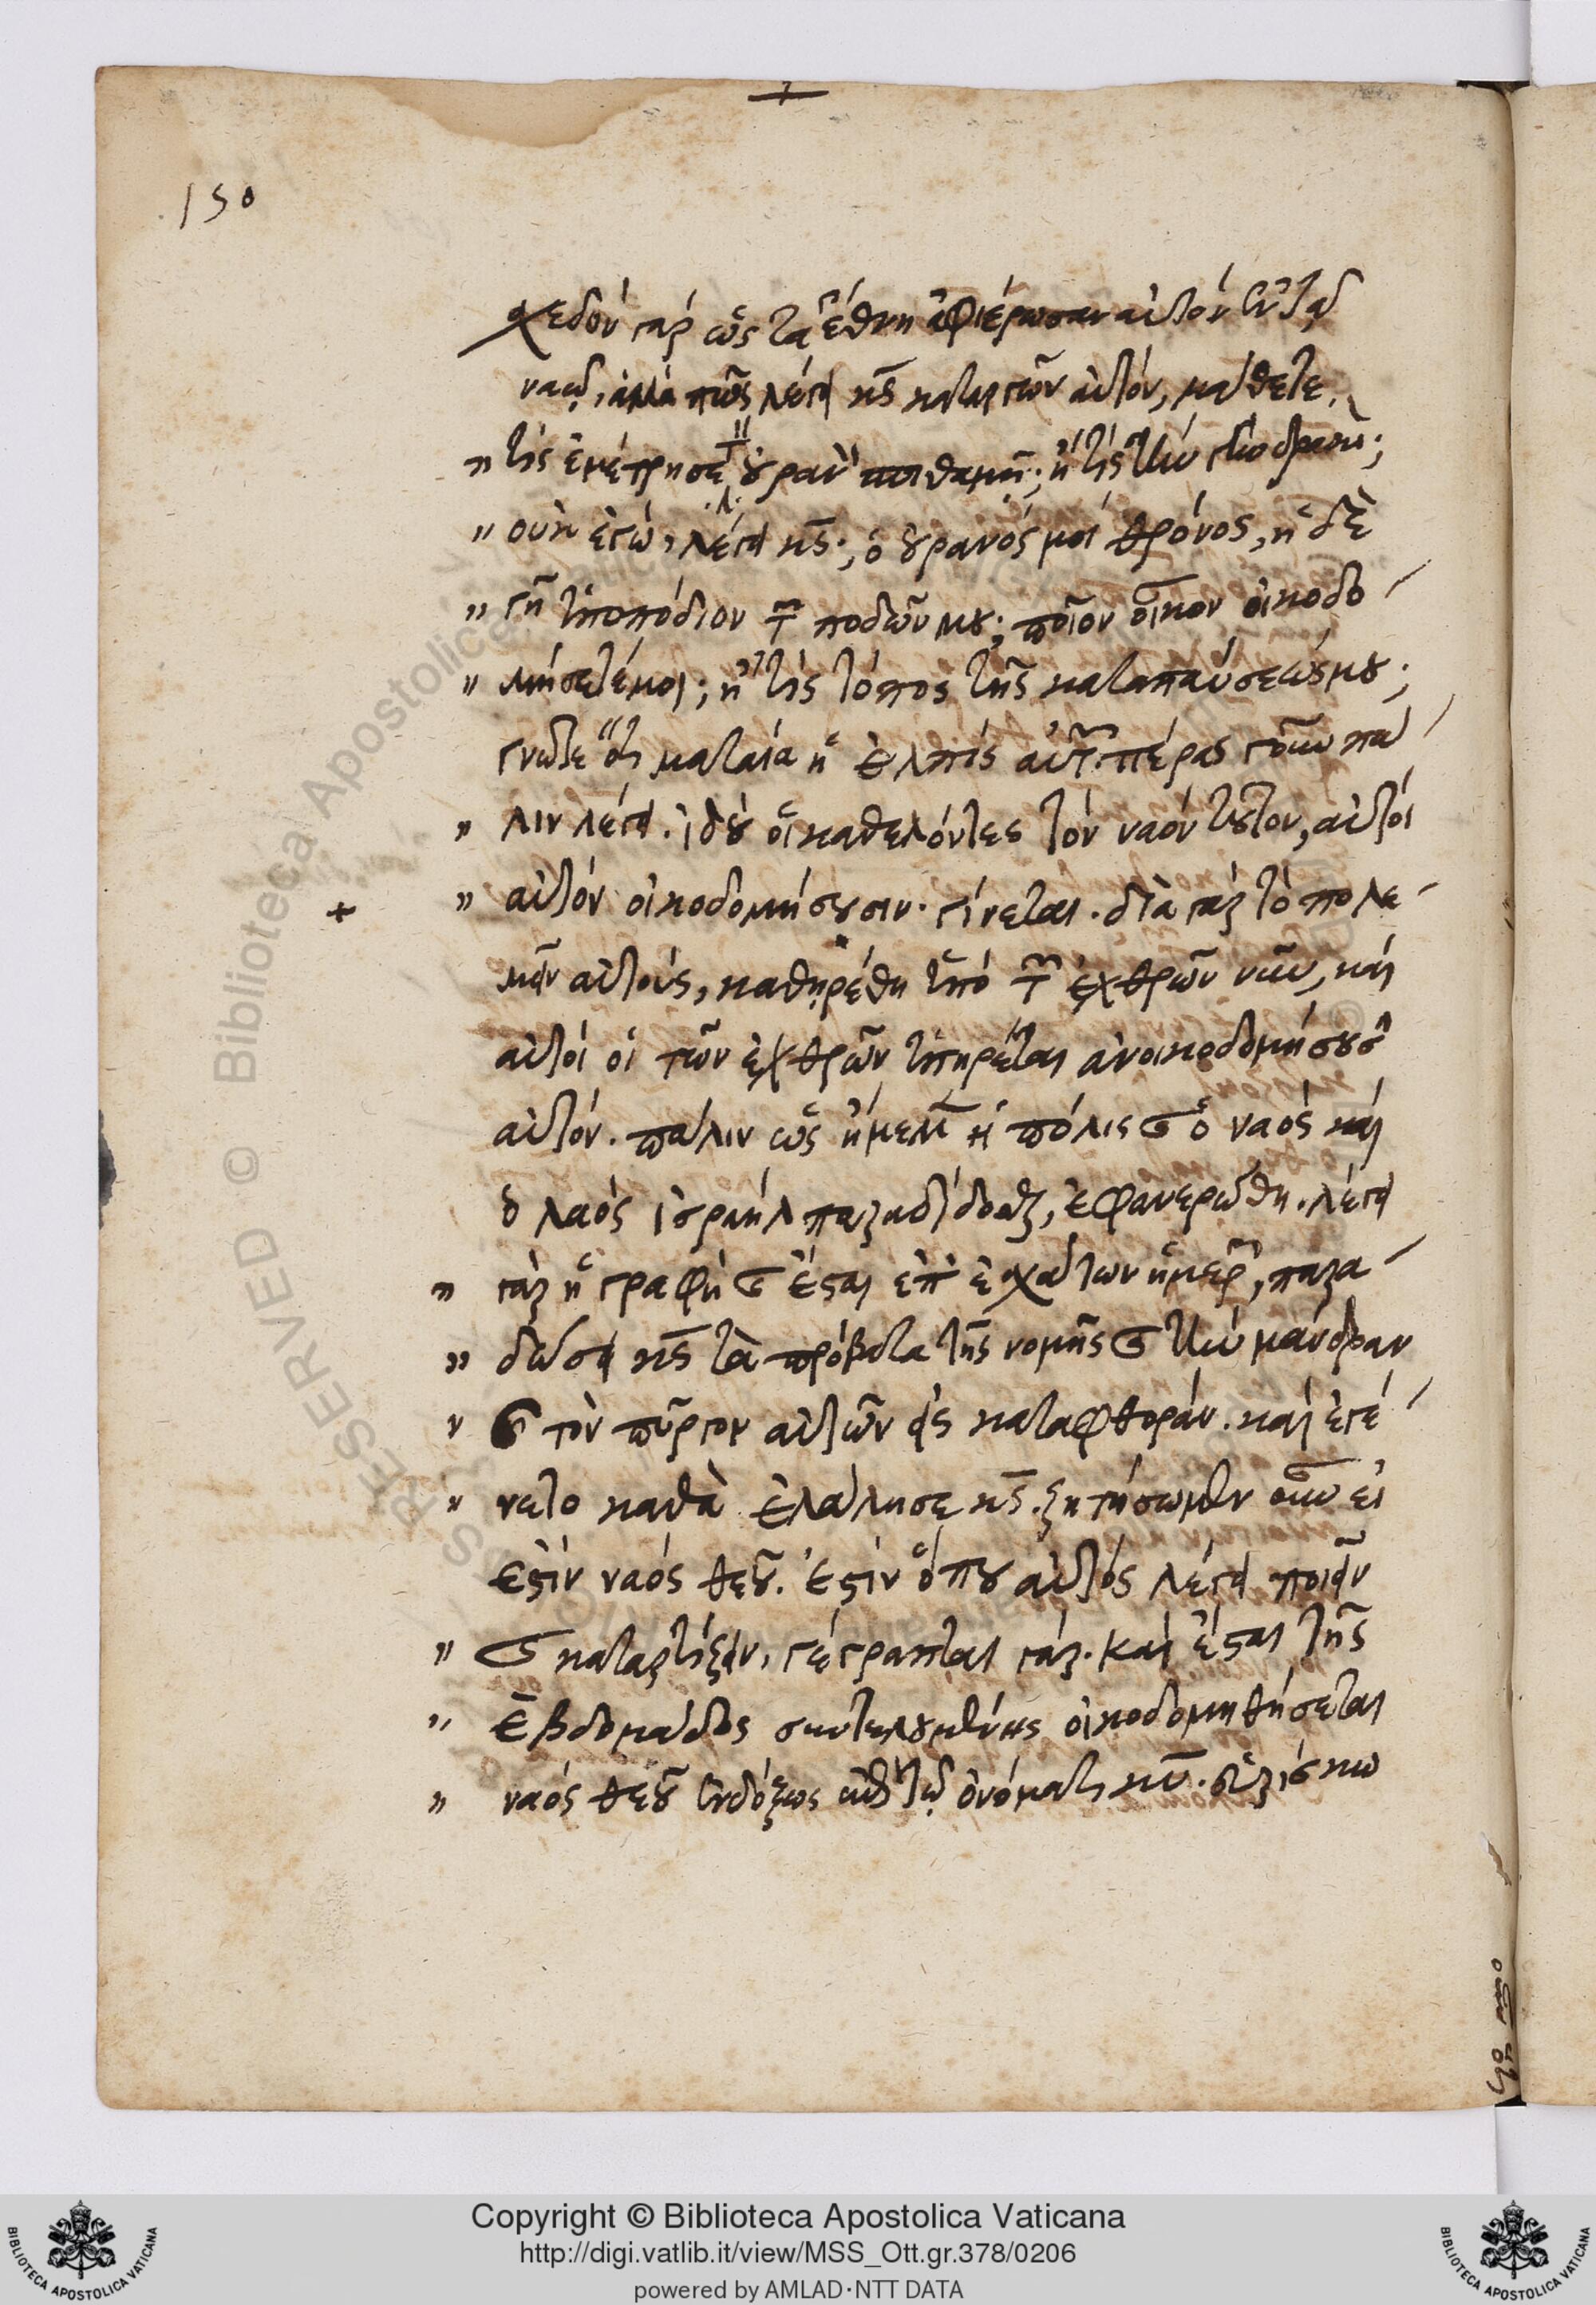 150
χεδόν γάρ ὡς τὰ ἔθνη ἀφιέρωσαν αὐτόν ἐν τῷ
ναῷ, ἀλλά πῶς λέγει κς̄ καταργῶν αὐτόν, μάθετε.
" τίς ἐμέτρησε τ̄ ȣ̓ραν πιθαμῇ; ἢ τίς τὴν γῆν δρακί;
" οὐκ ἐγώ, λέγει κς̄; ὁ ȣ̓ρανός μοι θρόνος, ἡ δὲ
" γῆ ὑποπόδιον τ̄ ποδῶν μȣ; ποῖον οἶκον οἰκοδο-
" μήσετέ μοι; ἢ τίς τόπος τῆς καταπαύσεώς μȣ;
γνῶτε ὅτι ματαία ἡ ἐλπίς αὐτ̄. πέρας γοῦν πά-
" λιν λέγει. ἰδȣ́ οἱ καθελόντες τόν ναόν τȣ͂τον, αὐτοί
+ " αὐτόν οἰκοδομήσȣσιν. γίνεται. διὰ γάρ τό πολε-
μεῖν αὐτούς, καθῃρέθη ὑπό τ̄ ἐχθρῶν νῦν, καί
αὐτοί οἱ τῶν ἐχθρῶν ὑπηρέται ἀνοικοδομήσȣσιν
αὐτόν. πάλιν ὡς ἤμελλ ἡ πόλις ϗ ὁ ναός καί
ὁ λαός ἰσραήλ παραδίδοσθαι, ἐφανερώθη. λέγει
" γάρ ἡ γραφή ϗ ἔσται ἐπ' ἐσχάτων ἡμερ, παρα-
" δώσει κς̄ τὰ πρόβατα τῆς νομῆς ϗ τὴν μάνδραν
" ϗ τὸν πύργον αὐτῶν εἰς καταφθοράν. καί ἐγέ-
" νετο καθὰ ἐλάλησε κς̄. ζητήσωμεν οὖν εἰ
ἐστίν ναός θεȣ͂. ἐστίν ὅπȣ αὐτός λέγει ποιεῖν
" ϗ καταρτίζειν, γέγραπται γάρ. καί ἔσται τῆς
" ἑβδομάδος συντελȣμένης οἰκοδομηθήσεται
" ναός θεȣ͂ ἐνδόξως ἐπὶ τῷ ὀνόματι κῡ. εὑρίσκω
Copyright © Biblioteca Apostolica Vaticana
http://digi.vatlib.it/view/MSS_Ott.gr.378/0206
powered by AMLAD·NTT DATA